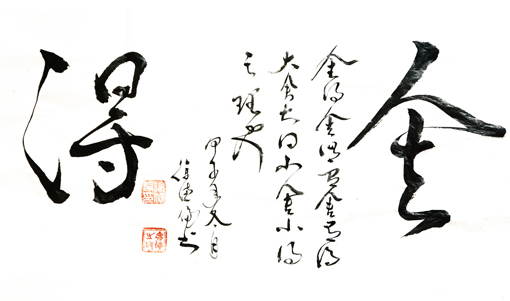 舍
舍得舍得舍得
大舍大得小舍小得
之理也
甲午年冬月
书
得